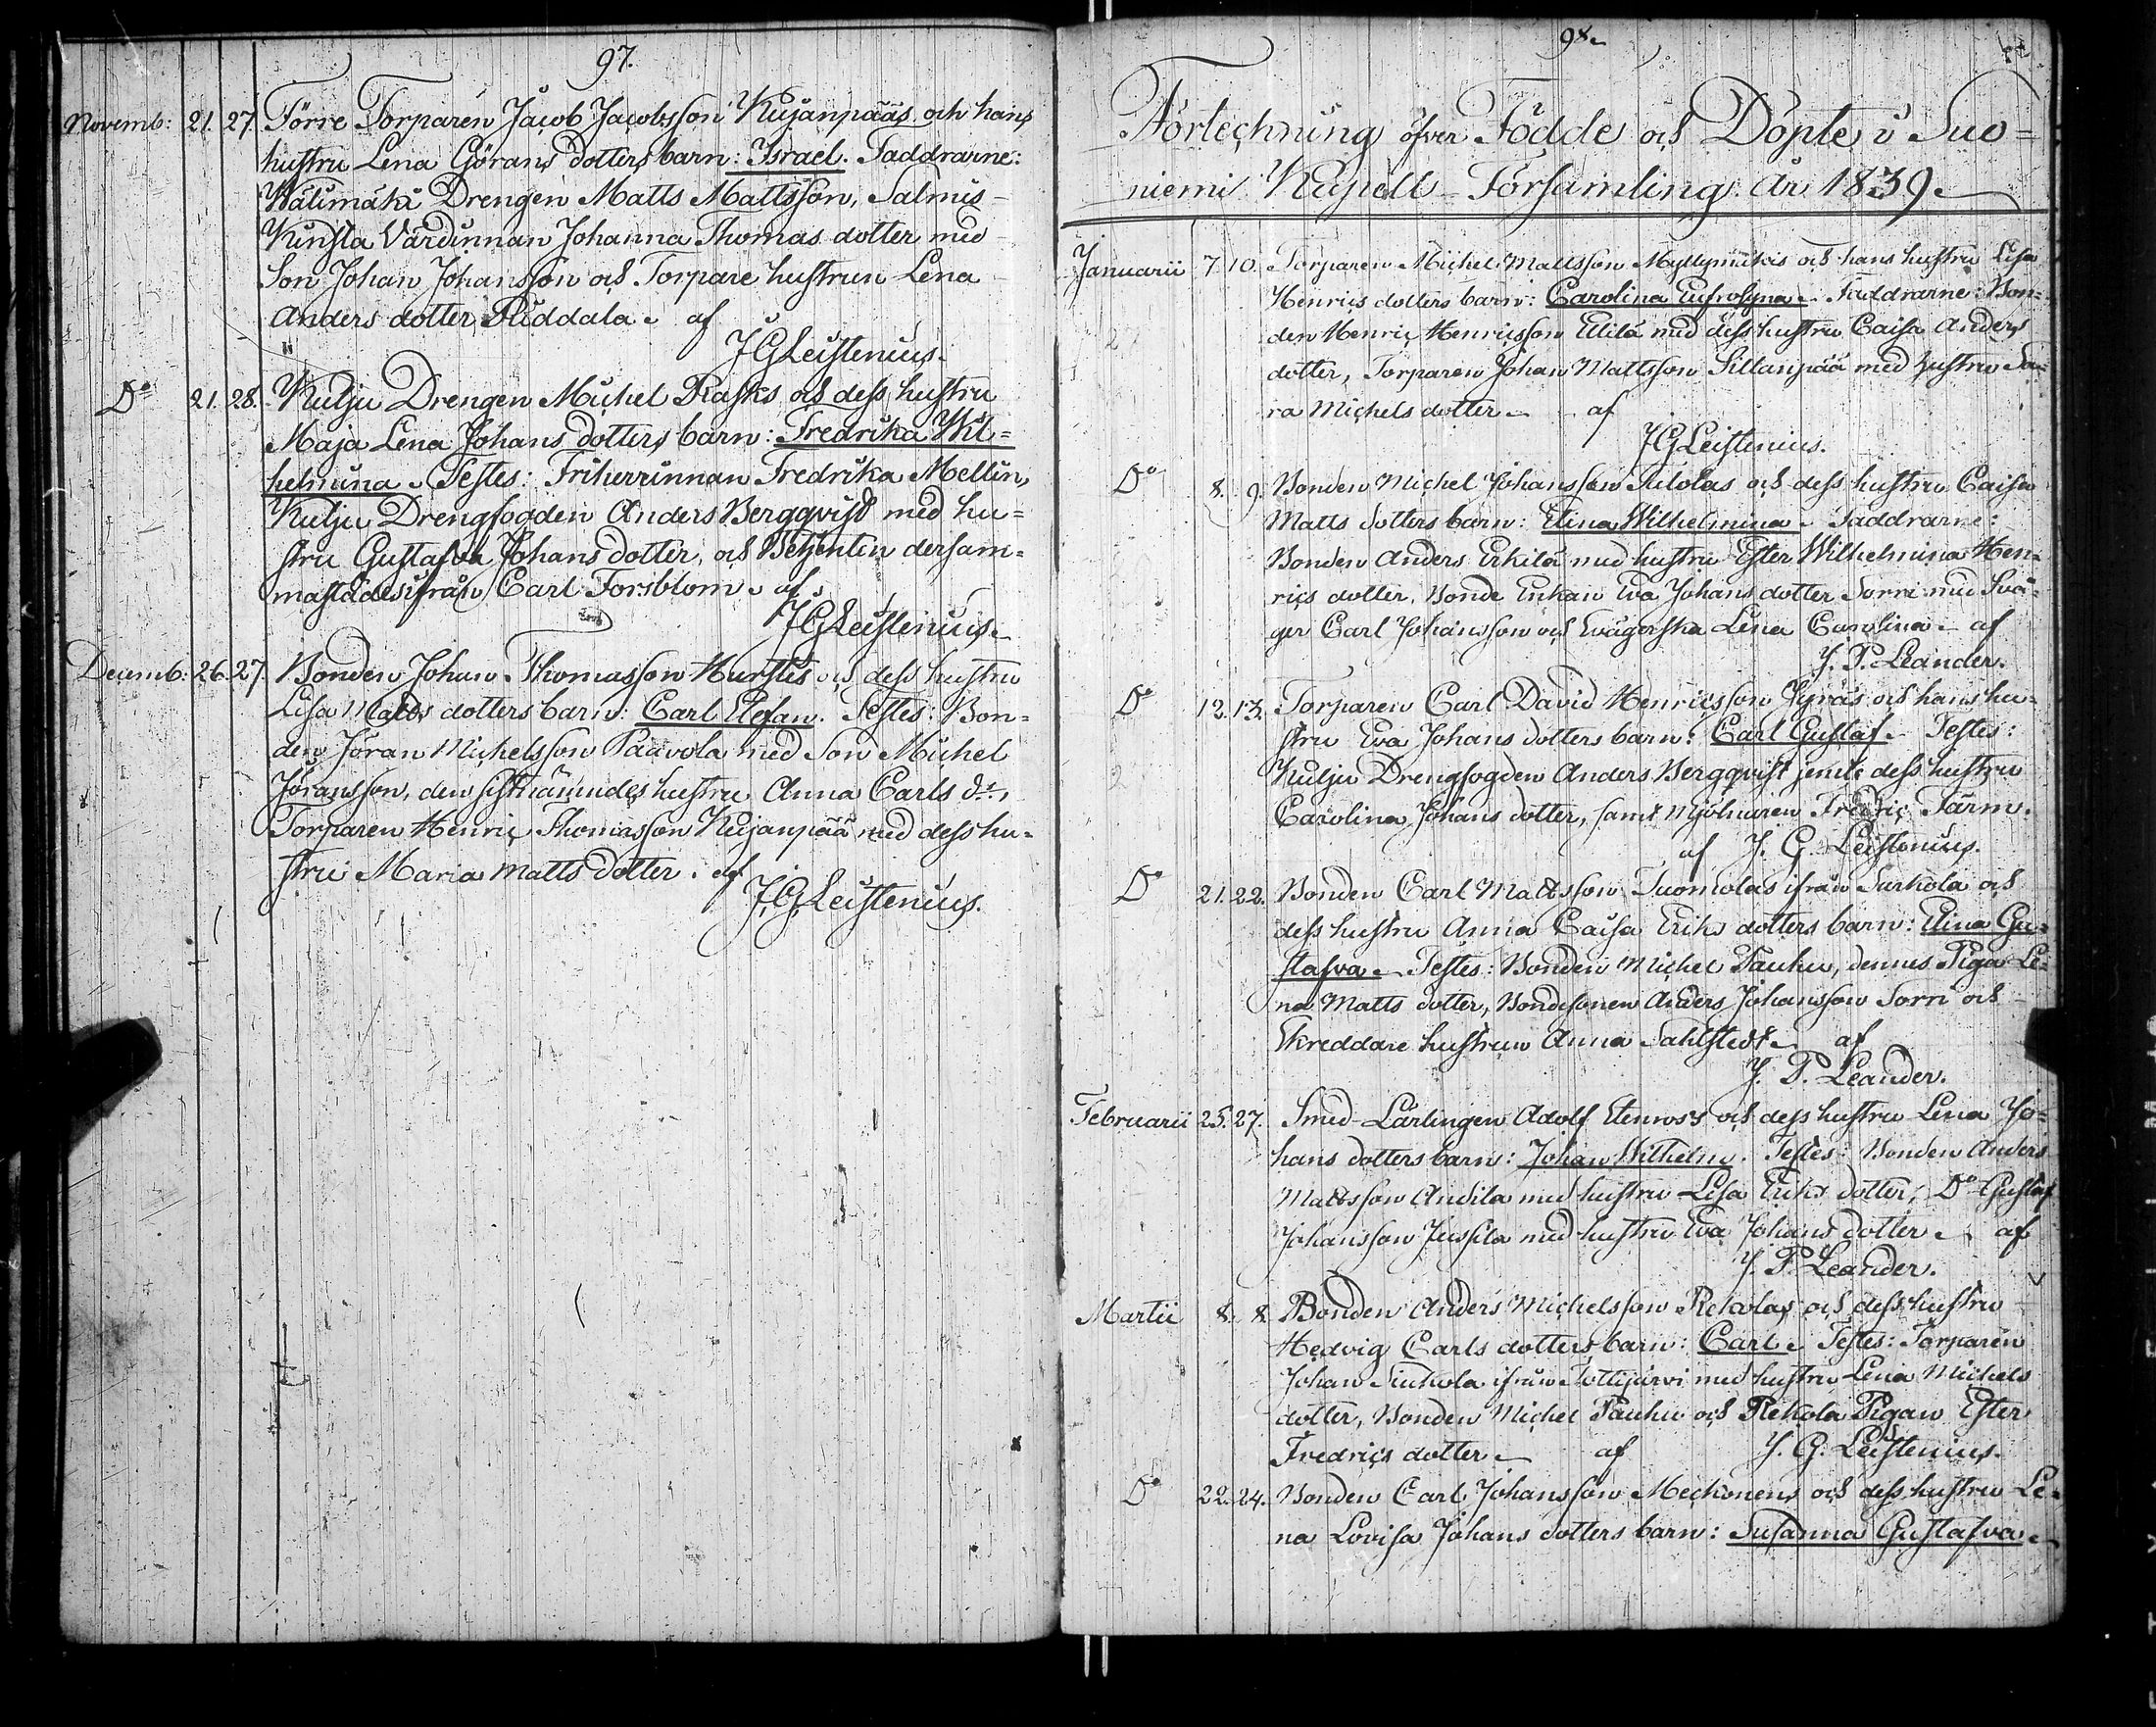 97.
Novemb: 21. 27. Förre Torparen Jacob Jacobsson Kujanpääs och hans
hustru Lena Görans dotters barn: Israel. Faddrarne:
Wälimäki Drengen Matts Mattsson, Salmis-
Kunsta Värdinnan Johanna Thomas dotter med
Son Johan Johansson och Torpare hustrun Lena
Anders dotter Puddala. af
JGLeistenius.
D:o 21. 28. Kulju Drengen Michel Rasks och dess hustru
Maja Lena Johans dotters barn: Fredrika Wil=
helmina. Testes: Friherrinnan Fredrika Mellin,
Kulju Drengfogden Anders Bergqvist med hu=
stru Gustafva Johans dotter, och Betjenten dersam=
mastädesifrån Carl Forsblom. af
JGLeistenius.
Decemb: 26. 27. Bonden Johan Thomasson Hurstis och dess hustru
Lisa Matts dotters barn: Carl Elefan. Testes: Bon=
den Jöran Michelsson Paavola med Son Michel
Jöransson, den sistnämndes hustru Anna Carls d:r,
Torparen Henric Thomasson Kujanpää med dess hu=
stru Maria Matts dotter. af
JGLeistenius.
98.
Förteckning öfver Födde och Döpte i Suo=
niemi Kapell-Församling. År 1839.
Januarii 7. 10. Torparen Michel Mattsson Myllymäkis och hans hustru Lisa
Henrics dotters barn: Carolina Eufrosyna. Faddrarne: Bon=
den Henric Henricsson Ellilä med dess hustru Caisa Anders
dotter, Torparen Johan Mattsson Sillanpää med hustru Sa=
ra Michels dotter. af
JGLeistenius.
D:o 8. 9. Bonden Michel Johansson Kilolas och dess hustru Caisa
Matts dotters barn: Elina Wilhelmina. Faddrarne:
Bonden Anders Erkilä med hustru Ester Wilhelmina Hen=
rics dotter, Bonde Enkan Eva Johans dotter Sorri med Svå=
ger Carl Johansson och Svägerska Lena Carolina. af
J. P. Leander.
D:o 12. 13. Torparen Carl David Henricsson Hyräs och hans hu=
stru Eva Johans dotters barn: Carl Gustaf. Testes:
Kulju Drengfogden Anders Bergqvist jemte dess hustru
Carolina Johans dotter, samt Mjölnaren Fredric Färm.
af J. G. Leistenius.
D:o 21. 22. Bonden Carl Mattsson Tuomolas ifrån Surkola och
dess hustru Anna Caisa Eriks dotters barn: Elina Gu=
stafva. Testes: Bonden Michel Pauhu, dennes Piga Le=
na Matts dotter, Bondesonen Anders Johansson Sorri och
Skreddare hustrun Anna Sahlstedt. af
J. P. Leander.
Februarii 25. 27. Smed-Lärlingen Adolf Elenross och dess hustru Lena Jo=
hans dotters barn: Johan Wilhelm. Testes: Bonden Anders
Mattsson Andila med hustru Lisa Eriks dotter, D:o Gustaf
Johansson Jussila med hustru Eva Johans dotter. af
J. P. Leander.
Martii 8. 8. Bonden Anders Michelsson Rekolas och dess hustru
Hedvig Carls dotters barn: Carl. Testes: Torparen
Johan Siukola ifrån Tottijärvi med hustru Lena Michels
dotter, Bonden Michel Pauhu och Rekola Pigan Ester
Fredrics dotter. af J. G. Leistenius.
D:o 22. 24. Bonden Carl Johansson Meckonens och dess hustru Le=
na Lovisa Johans dotters barn: Susanna Gustafva.